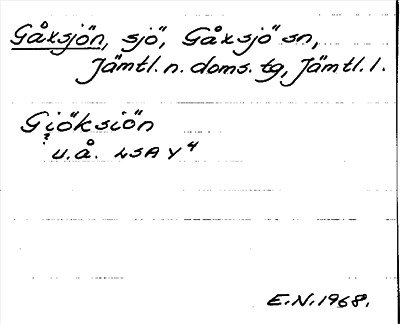 Gåxsjön, sjö, Gåxsjö sn,
Jämtl. n. doms. tg, Jämtl. l.
Giöksiön
?
u.å. LSA Y4
E.N. 1968.